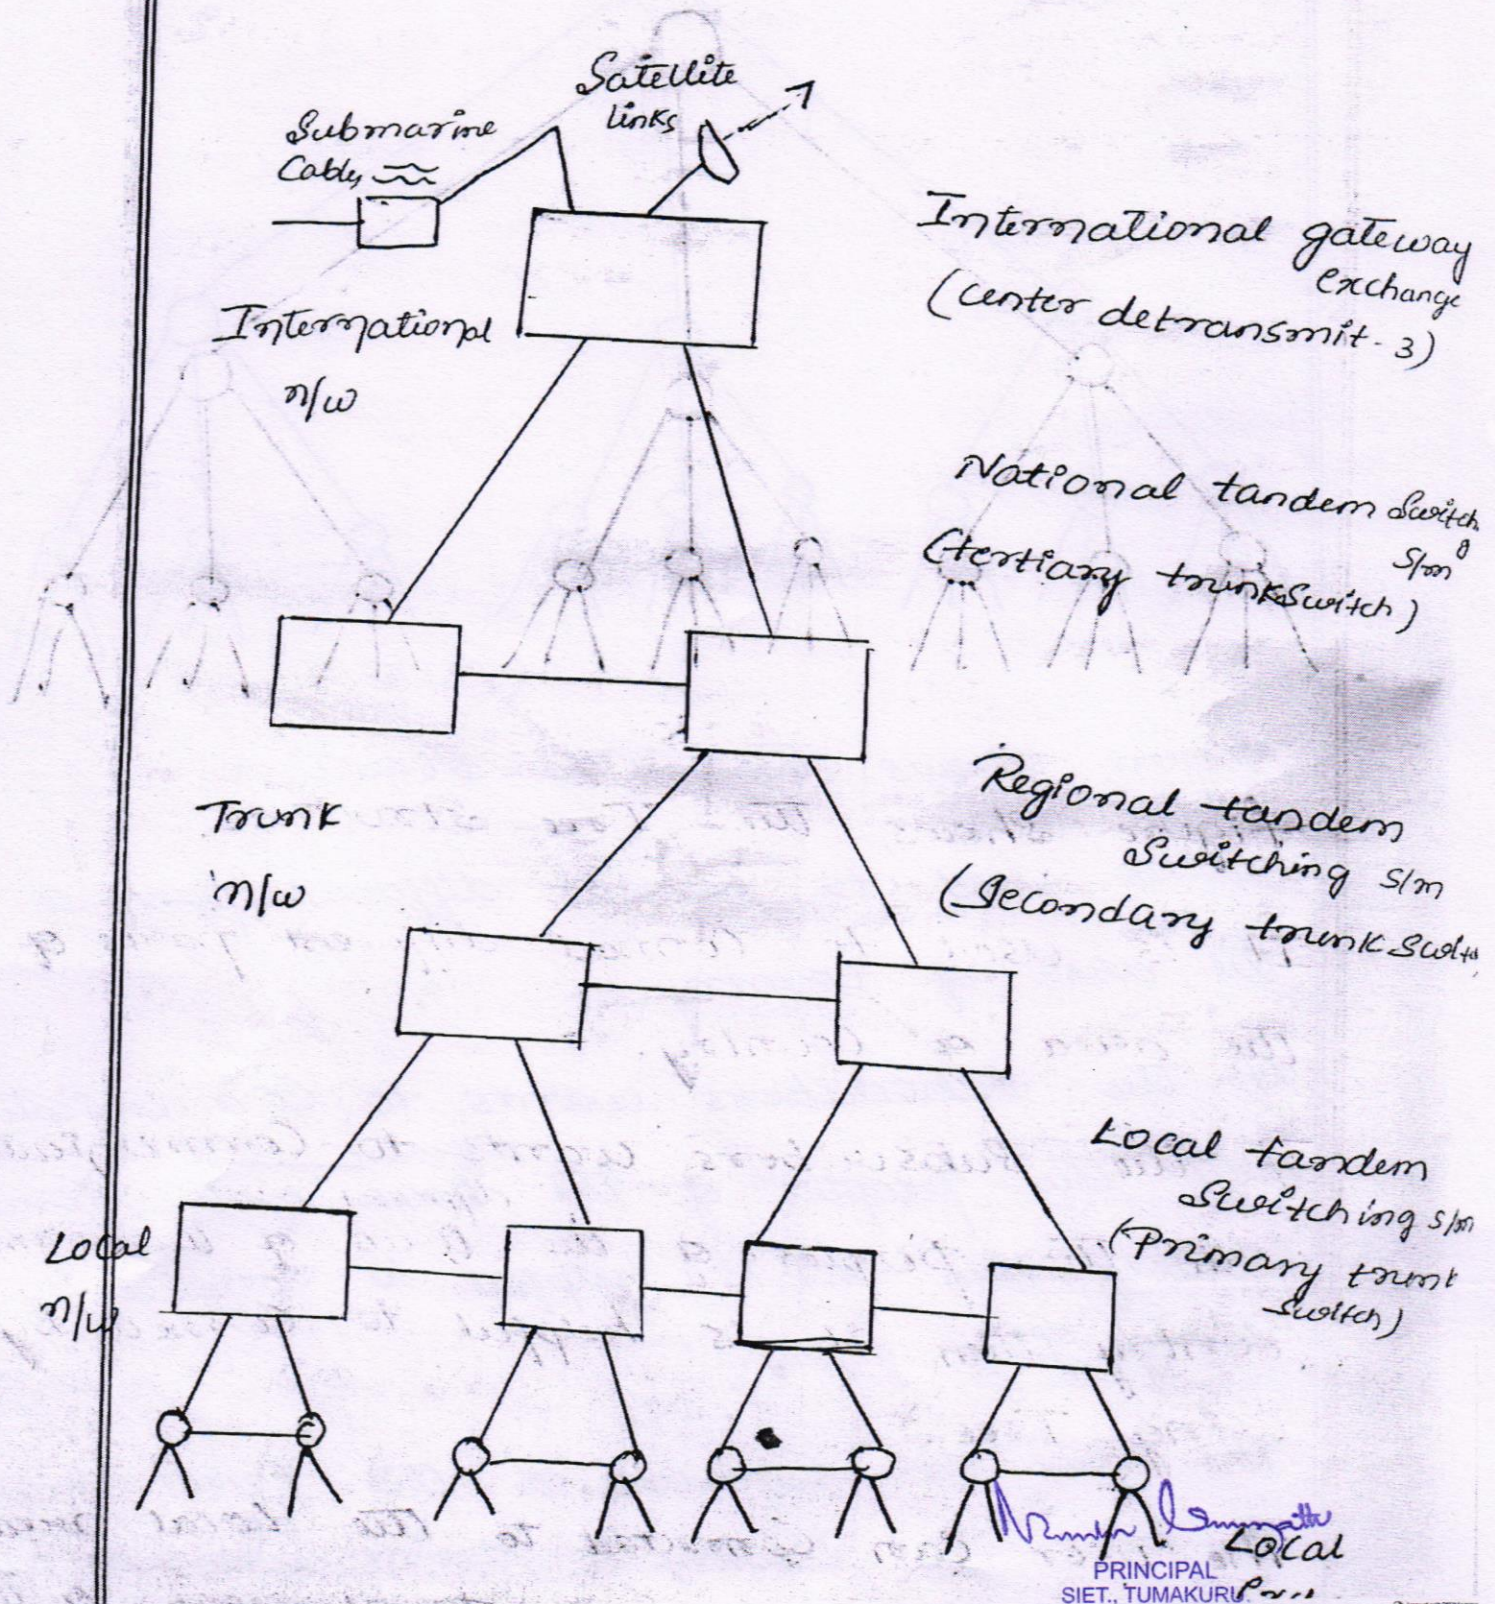 Satellite
links
Submarine
Cables
International gateway
exchange
(center detransmit - 3)
International
n/w
National tandem Switch
g
s/m
(tertiary trunk Switch)
Trunk
n/w
Regional tandem
Switching s/m
(Secondary trunk Switch
Local tandem
Switching s/m
(Primary trunk
Switch)
Local
n/w
Local
PRINCIPAL
SIET., TUMAKURU.